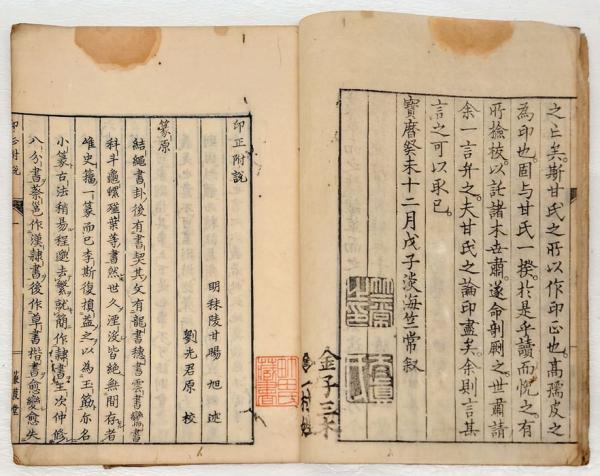 之亡矣斯甘氏之所以作印正也髙孺皮之
為印也固与甘氏一揆於是乎讀而悦之有
所撿挍以託諸木世肅遂命剞劂之世肅請
余一言弁之夫甘氏之論印盡矣余則言其
言之可以取已
寳曆癸未十二月戊子淡海竺常叙
印正附説
明秣陵甘暘 旭 述
劉光君原 校
篆原
結繩書卦後有書契其文有龍書穗書雲書鸞書
科斗龜螺薤葉等書然世久湮没皆絶無間存者
唯史籀一篆而已李斯復損益之以為玉筯亦名
小篆古法稍易程邈去繁就簡作隷書王次仲修
八分書蔡邕作漢隷書後作草書楷書愈變愈失
印正附説 一 蒹葭堂